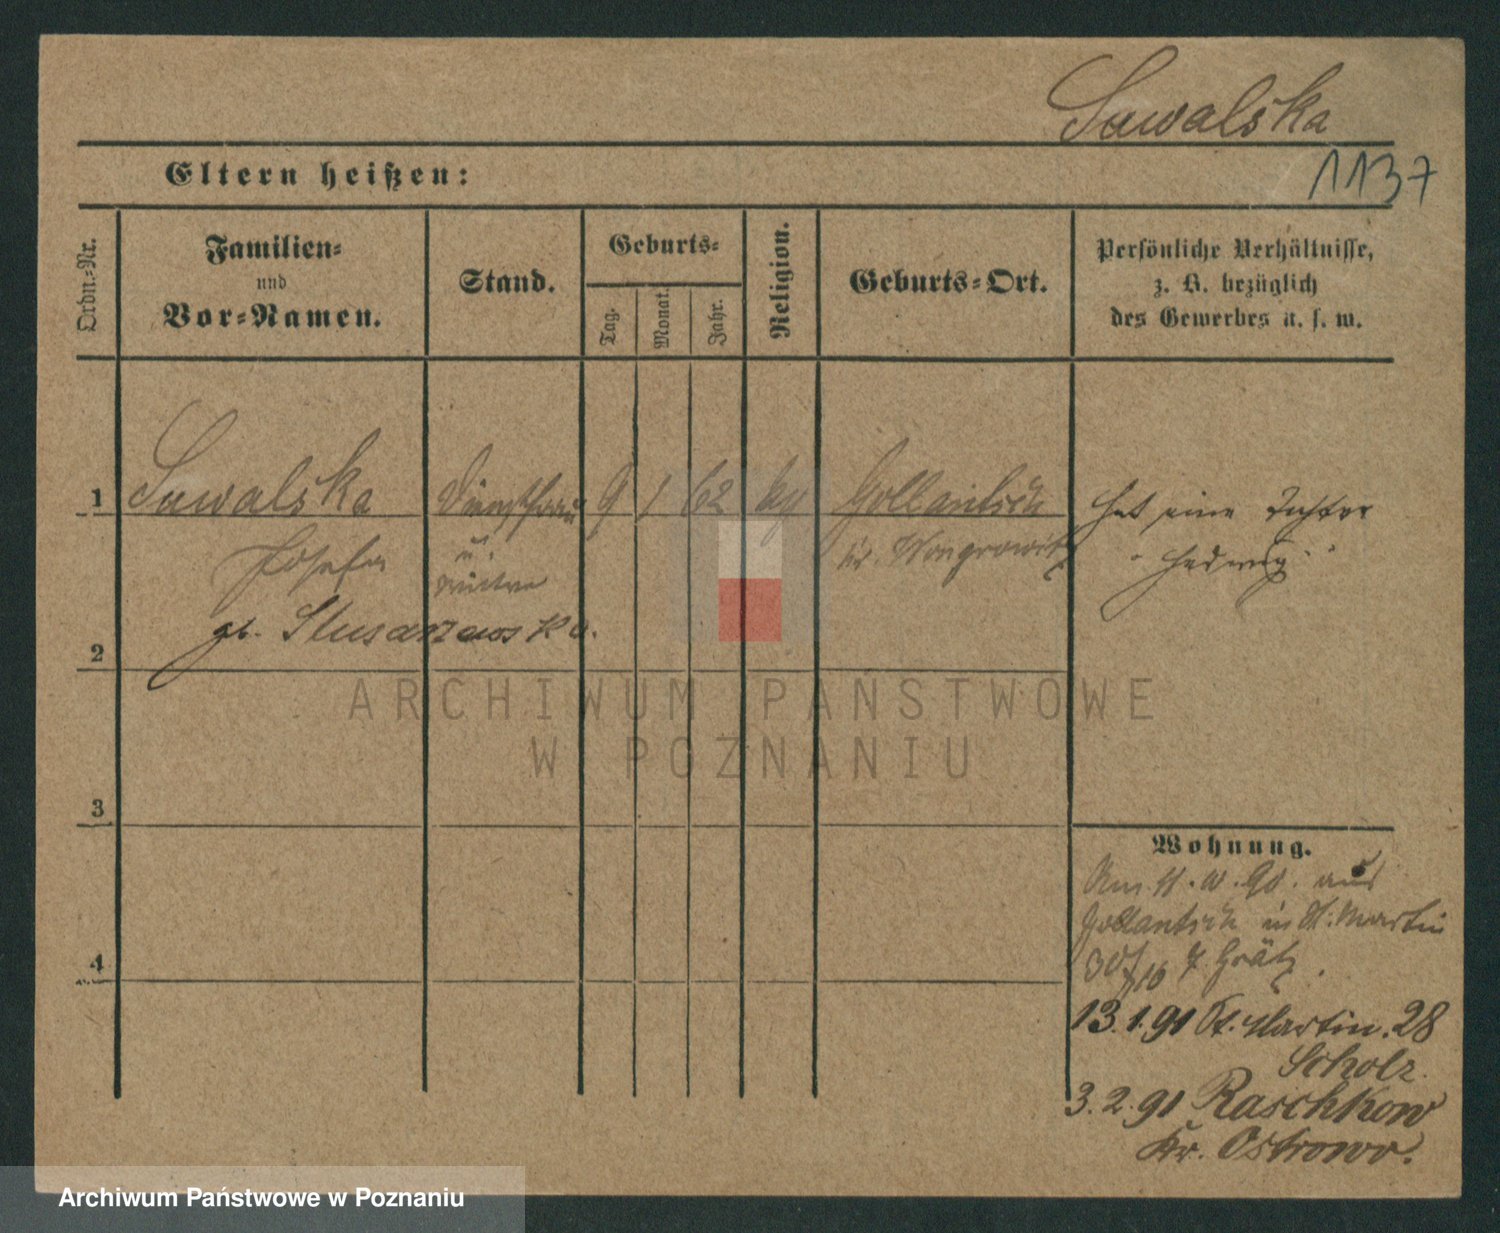 Suwalska
1137
Eltern heißen:
Ordn.=Nr.
Familien=
und
Vor=Namen.
Stand.
Geburts=
Tag.
Monat.
Jahr.
Religion.
Geburts=Ort.
Persönliche Verhältnisse,
z. B. bezüglich
des Gewerbes u. s. w.
1
Suwalska
Dienstfrau
9
1
62
Gollantsch
Hat eine Tochter
Josefa
u.
Kr. Wongrowitz
"Hedwig"
Wittwe
gb. Slusarzewska.
2
ARCHIWUM PAŃSTWOWE
W POZNANIU
3
Wohnung.
Am 11. 10. 90. aus
Gollantsch in St. Martin
4
30/
Grätz.
13.1.91 St. Martin. 28
Scholz.
3.2.91 Raschkow
Kr. Ostrowo.
Archiwum Państwowe w Poznaniu